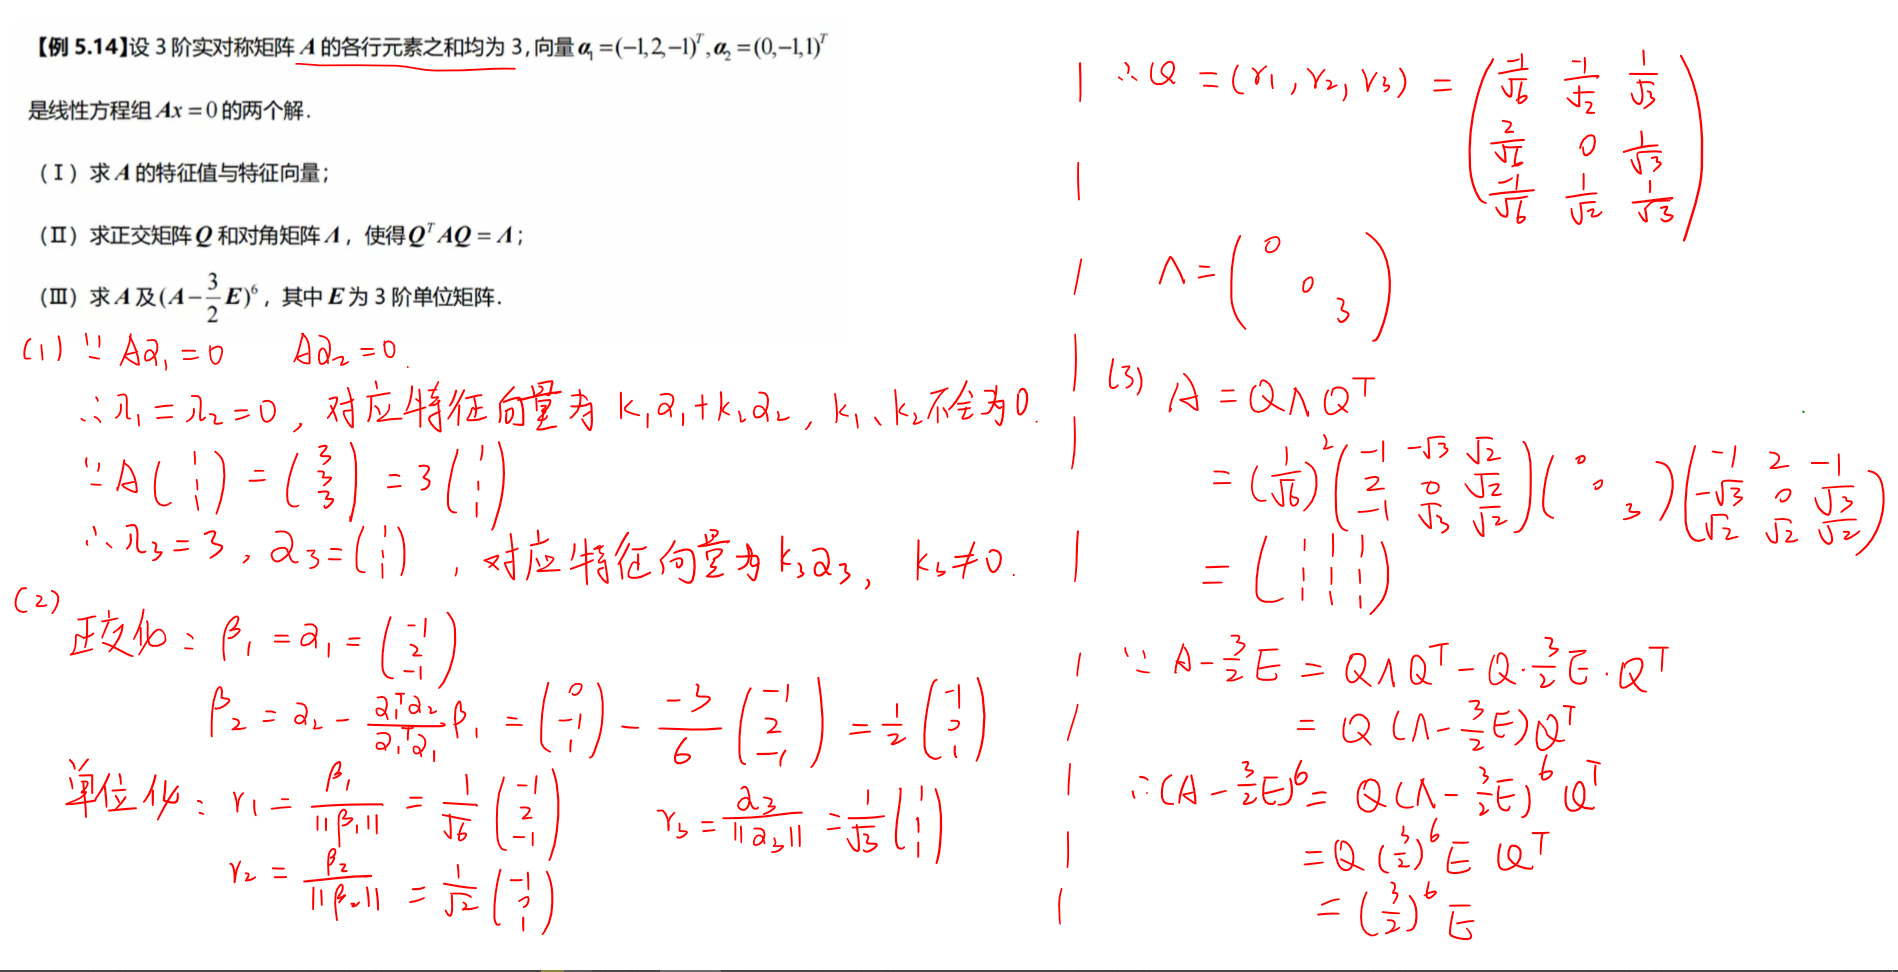 【例 5.14】设 3 阶实对称矩阵 A 的各行元素之和均为 3,向量 α₁=(−1,2,−1)ᵀ,α₂=(0,−1,1)ᵀ
是线性方程组 Ax=0 的两个解.
(Ⅰ) 求 A 的特征值与特征向量;
(Ⅱ) 求正交矩阵 Q 和对角矩阵 Λ, 使得 QᵀAQ=Λ;
(Ⅲ) 求 A 及 (A−3/2 E)⁶, 其中 E 为 3 阶单位矩阵.
(1) ∵ Aα₁=0 Aα₂=0.
∴ λ₁=λ₂=0, 对应特征向量为 k₁α₁+k₂α₂, k₁、k₂不全为0.
∵ A(1 1 1) = (3 3 3) = 3(1 1 1)
∴ λ₃=3, α₃=(1 1 1), 对应特征向量为 k₃α₃, k₃≠0.
(2)
正交化: β₁=α₁=(−1 2 −1)
β₂=α₂−(α₁ᵀα₂/α₁ᵀα₁)β₁=(0 −1 1)−(−3/6)(−1 2 −1)=1/2(−1 0 1)
单位化: γ₁=β₁/||β₁||=1/√6(−1 2 −1) γ₃=α₃/||α₃||=1/√3(1 1 1)
γ₂=β₂/||β₂||=1/√2(−1 0 1)
∴ Q=(γ₁,γ₂,γ₃)=(−1/√6 −1/√2 1/√3
2/√6 0 1/√3
−1/√6 1/√2 1/√3)
Λ=(0 0 3)
(3) A=QΛQᵀ
=(1/√6)²(−1 −√3 √2 2 0 √2 −1 √3 √2)(0 0 3)(−1 2 −1 −√3 0 √3 √2 √2 √2)
=(1 1 1 1 1 1 1 1 1)
∵ A−3/2 E=QΛQᵀ−Q·3/2 E·Qᵀ
=Q(Λ−3/2 E)Qᵀ
∴ (A−3/2 E)⁶=Q(Λ−3/2 E)⁶Qᵀ
=Q(3/2)⁶E Qᵀ
=(3/2)⁶E